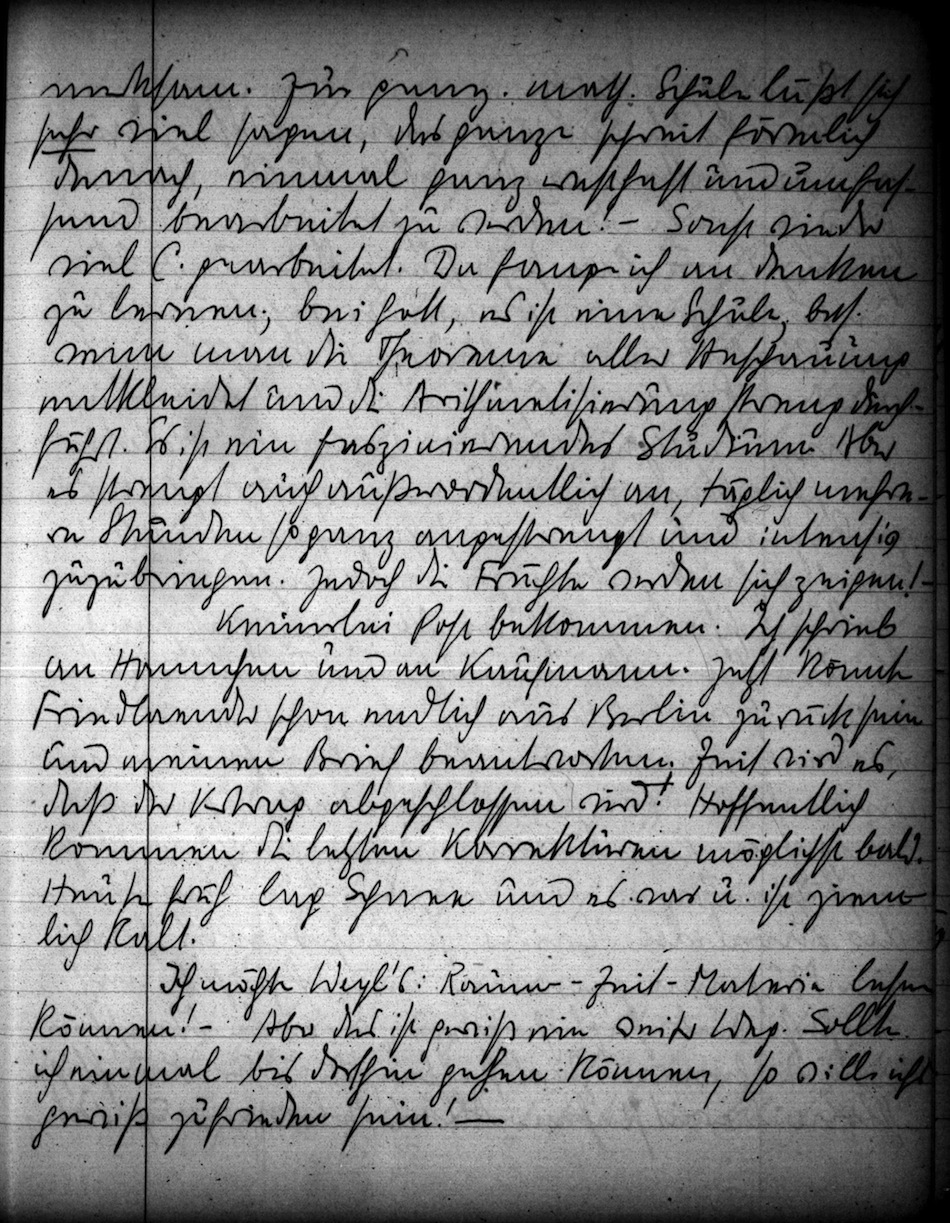 merksam. Zur franz. math. Schule läßt sich
sehr viel sagen, das ganze schreit förmlich
danach, einmal ganz ernsthaft und umfas-
send bearbeitet zu werden! – Sonst wieder
viel C. gearbeitet. Da fange ich an denken
zu lernen; bei Gott, es ist eine Schule, bes.
wenn man die Theoreme aller Anschauung
entkleidet und die Arithmetisierung streng durch-
führt. Es ist ein faszinierendes Studium. Aber
es strengt auch außerordentlich an, täglich mehre-
re Stunden so ganz angestrengt und intensiv
zuzubringen. Jedoch die Früchte werden sich zeigen! –
Keinerlei Post bekommen. Ich schrieb
an Hannchen und an Kaufmann. Jetzt könnte
Friedlaender schon endlich aus Berlin zurück sein
und meinen Brief beantworten. Zeit wird es,
daß der Vertrag abgeschlossen wird! Hoffentlich
kommen die letzten Korrekturen möglichst bald.
Heute früh lag Schnee und es war u. ist ziem-
lich kalt.
Ich möchte Weyl's: Raum – Zeit – Materie lesen
können! – Aber das ist gewiß ein weiter Weg. Sollte
ich einmal bis dorthin gehen können, so will ich
gewiß zufrieden sein! —